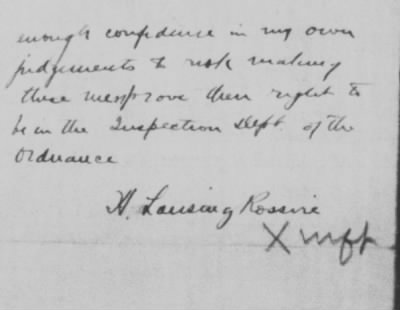 enough confidence in my own
judgements to risk making
these men prove their right to
be in the Inspection Dept. of the
Ordnance
H. Lansing
X